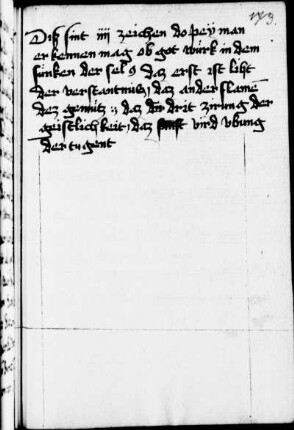 173
Diß sint iiii zeichen do pey man
erkennen mag ob got würk in dem
fünken der sel daz erst ist liht
der verstantnüß, daz ander flame
dez gemütz daz drit zirung der
geistlichkeit, daz vird vbung
der tugent